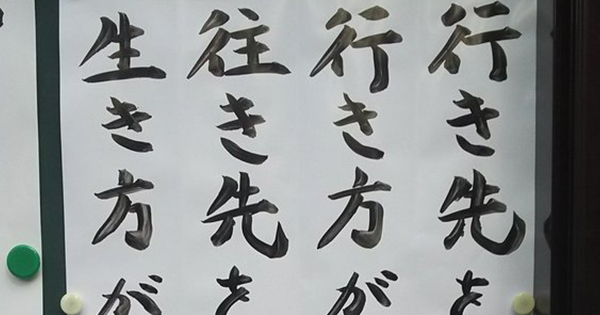 行き先を
行き方が
往き先を
生き方が